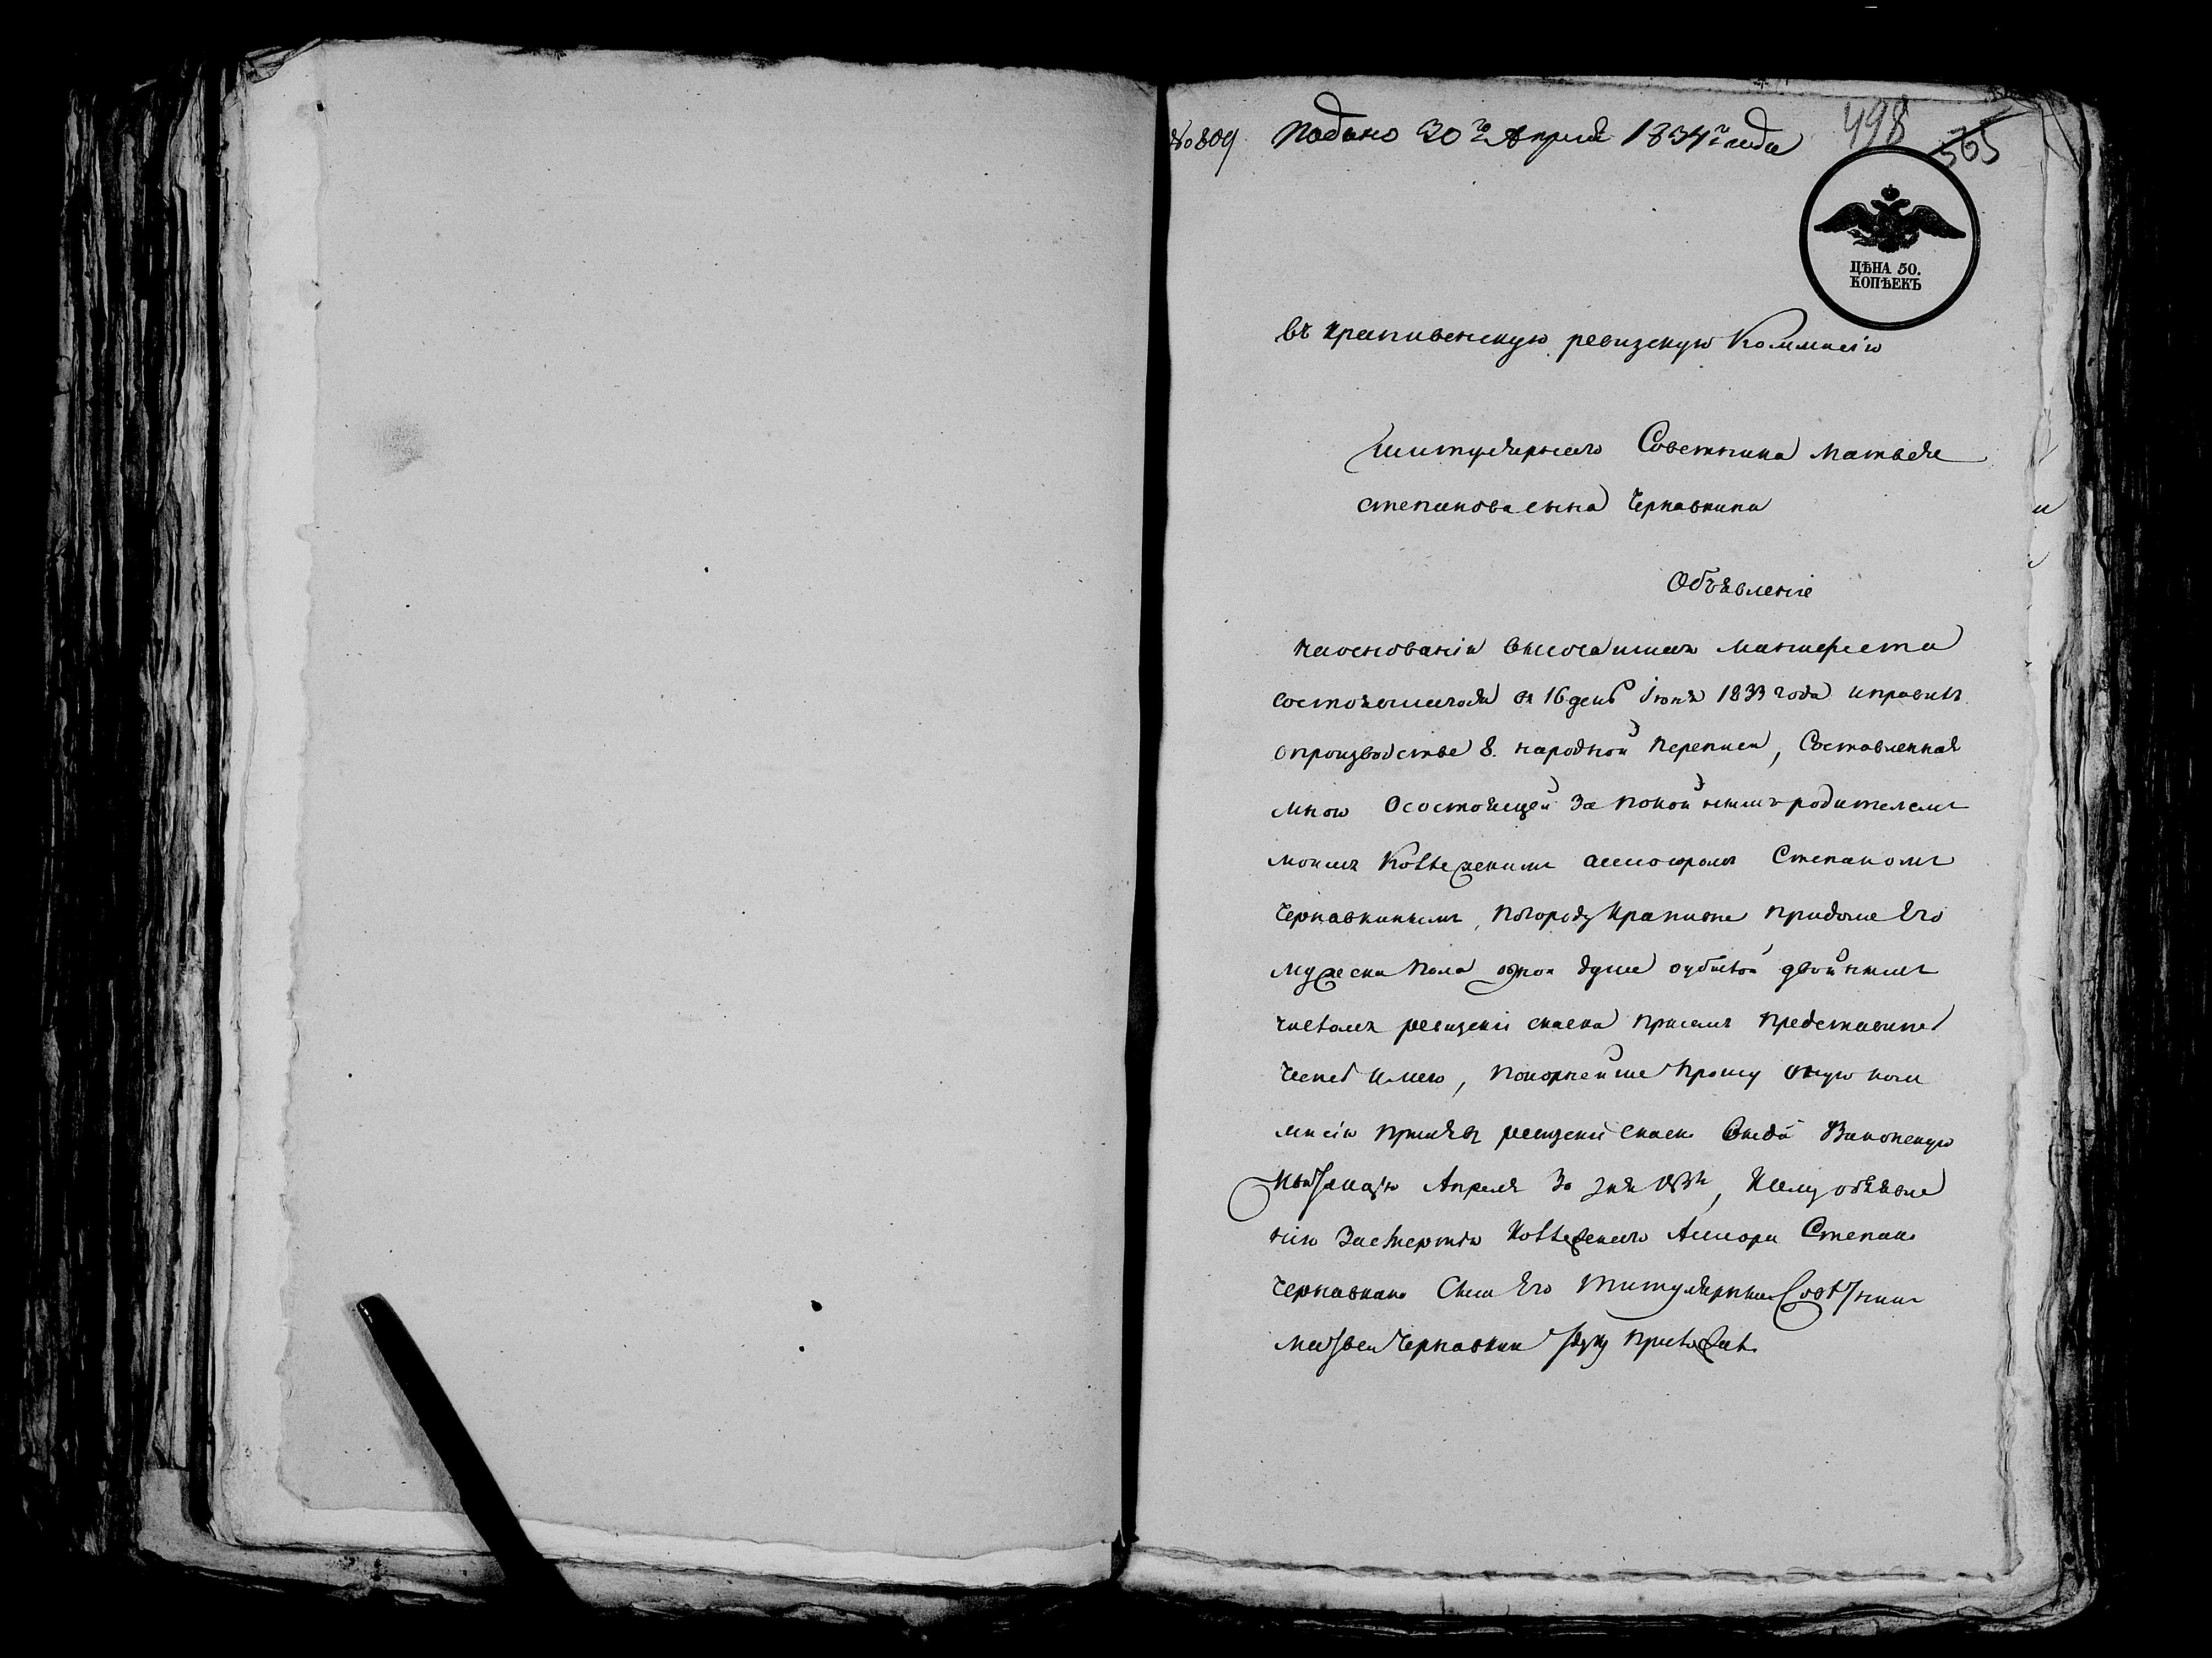 № 809 Подано 30го Апреля 1834го года
498
505
ЦѢНА 50.
КОПѢЕКЪ
въ крапивенскую ревизскую Коммисію
титулярнаго Советника Матвея
степанова сына Чернавкина
Объявленіе
наоснованіи высочайшаго манифеста
состоявшагося въ 16 день Іюня 1833 года иправилъ
опроизводстве 8. народной переписи, Составленная
мною Осостоящей за покойнымъ родителемъ
моимъ Коллежскимъ ассесоромъ Степаномъ
Чернавкинымъ, погороду Крапивне придоме Его
мужеска пола одной душе субылой двойнымъ
числомъ ревизскіи скаски присемъ представить
честь имею, покорнейше прошу оную ком
мисію принявъ ревизскіи скаски законную
квитанцію Апреля 30 дня, Ксему объявле
нію Засмертію Коллежскаго Ассесора Степана
Чернавкина Сынъ Его титулярный Советникъ
матвей Чернавкин руку приложилъ